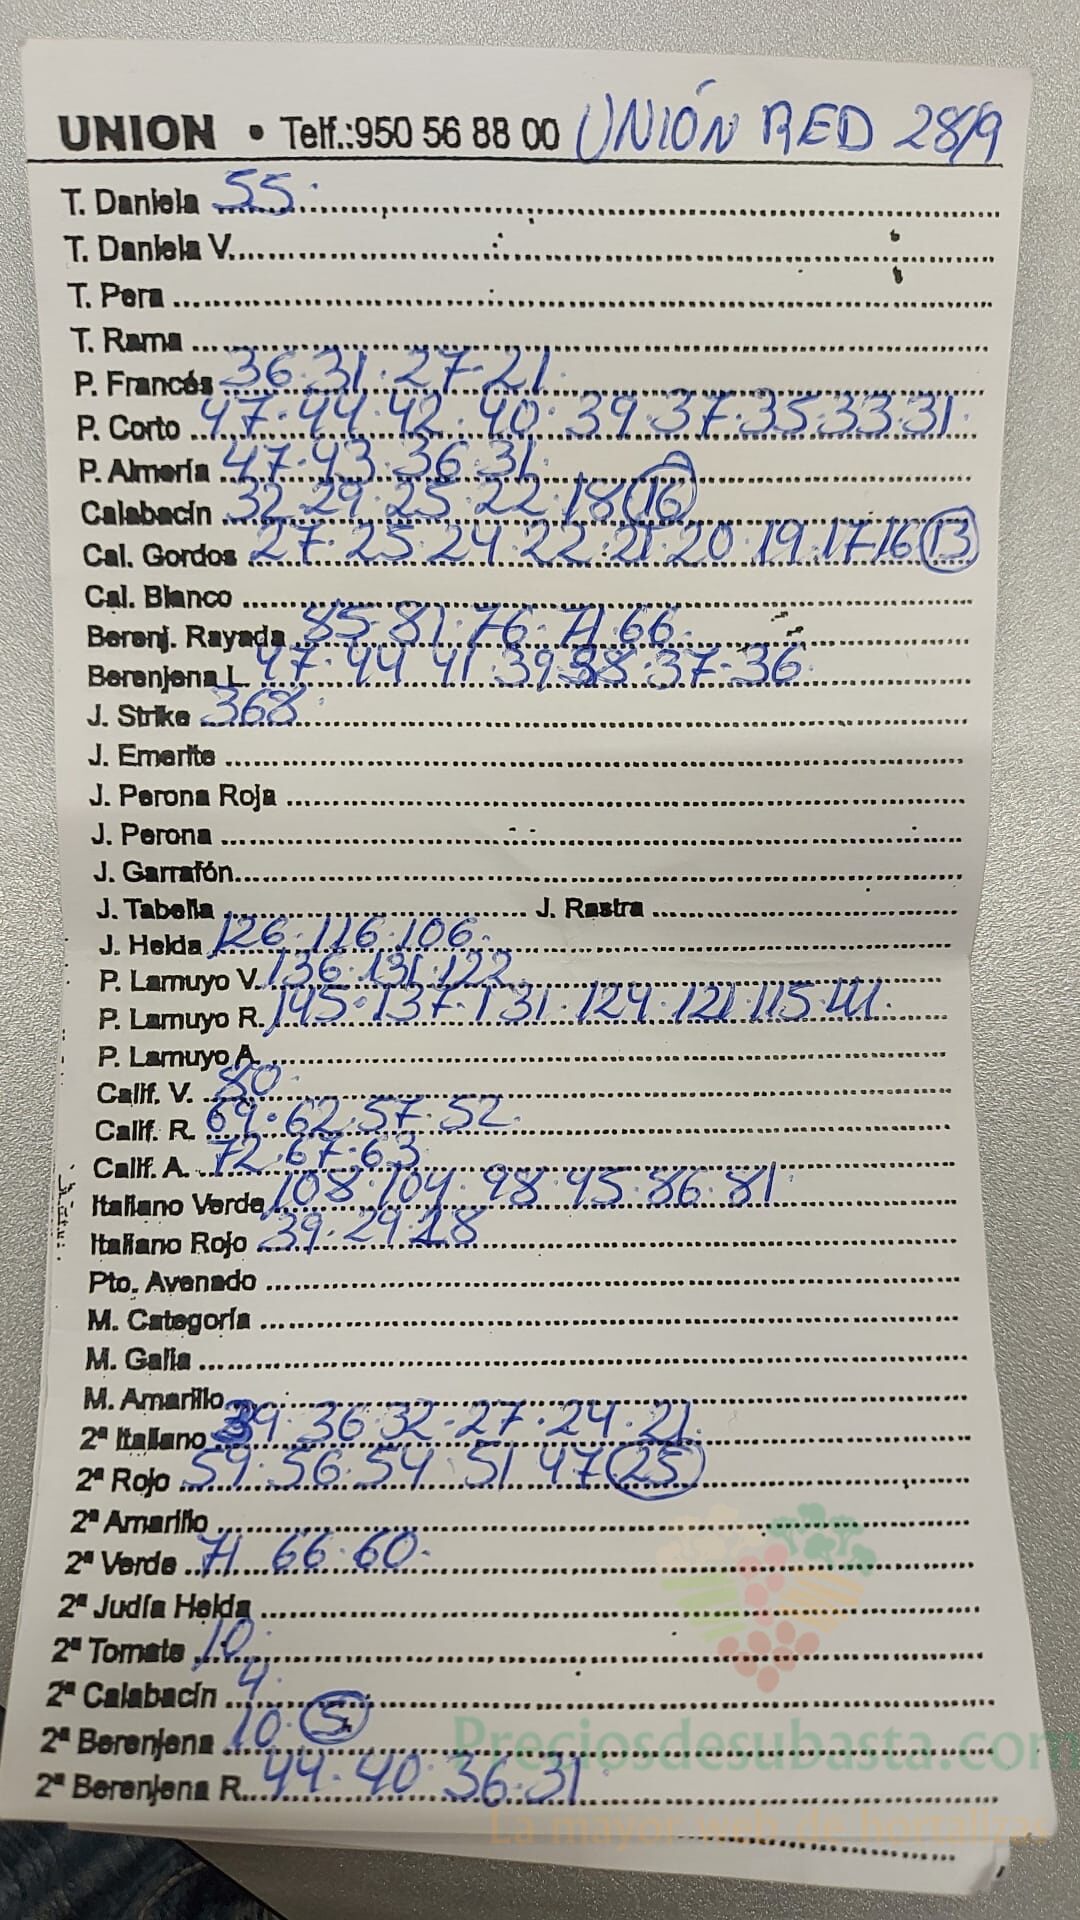 UNION • Telf.:950 56 88 00 UNIÓN RED 28/9
T. Daniela 55.
T. Daniela V.
T. Pera
T. Rama
P. Francés 36.31.27-21.
P. Corto 47.44.42.40.39.37.35.33.31.
P. Almería 47.43.36.31.
Calabacín 32.29.25.22.18 16
Cal. Gordos 27.25.24.22.21.20.19.17.16 13
Cal. Blanco
Berenj. Rayada 85.81.76.71.66.
Berenjena L. 47.44 41.39.38.37.36.
J. Strike 368.
J. Emerite
J. Perona Roja
J. Perona
J. Garrafón
J. Tabella J. Rastra
J. Helda 126.116.106.
P. Lamuyo V. 136.131.122
P. Lamuyo R. 145.137.131.124.121.115.111.
P. Lamuyo A.
Calif. V. 80.
Calif. R. 69.62.57.52.
Calif. A. 72.67.63
Italiano Verde 108.104.98.95.86.81.
Italiano Rojo 39.29.18
Pto. Avenado
M. Categoría
M. Galia
M. Amarillo
2ª Italiano 39.36.32.27.24.21.
2ª Rojo 59.56.54.51 47 25
2ª Amarillo
2ª Verde 71 66.60.
2ª Judía Helda
2ª Tomate 10.
2ª Calabacín 4.
2ª Berenjena 10. 5
2ª Berenjena R. 44.40.36.31.
Preciosdesubasta.com
La mayor web de hortalizas